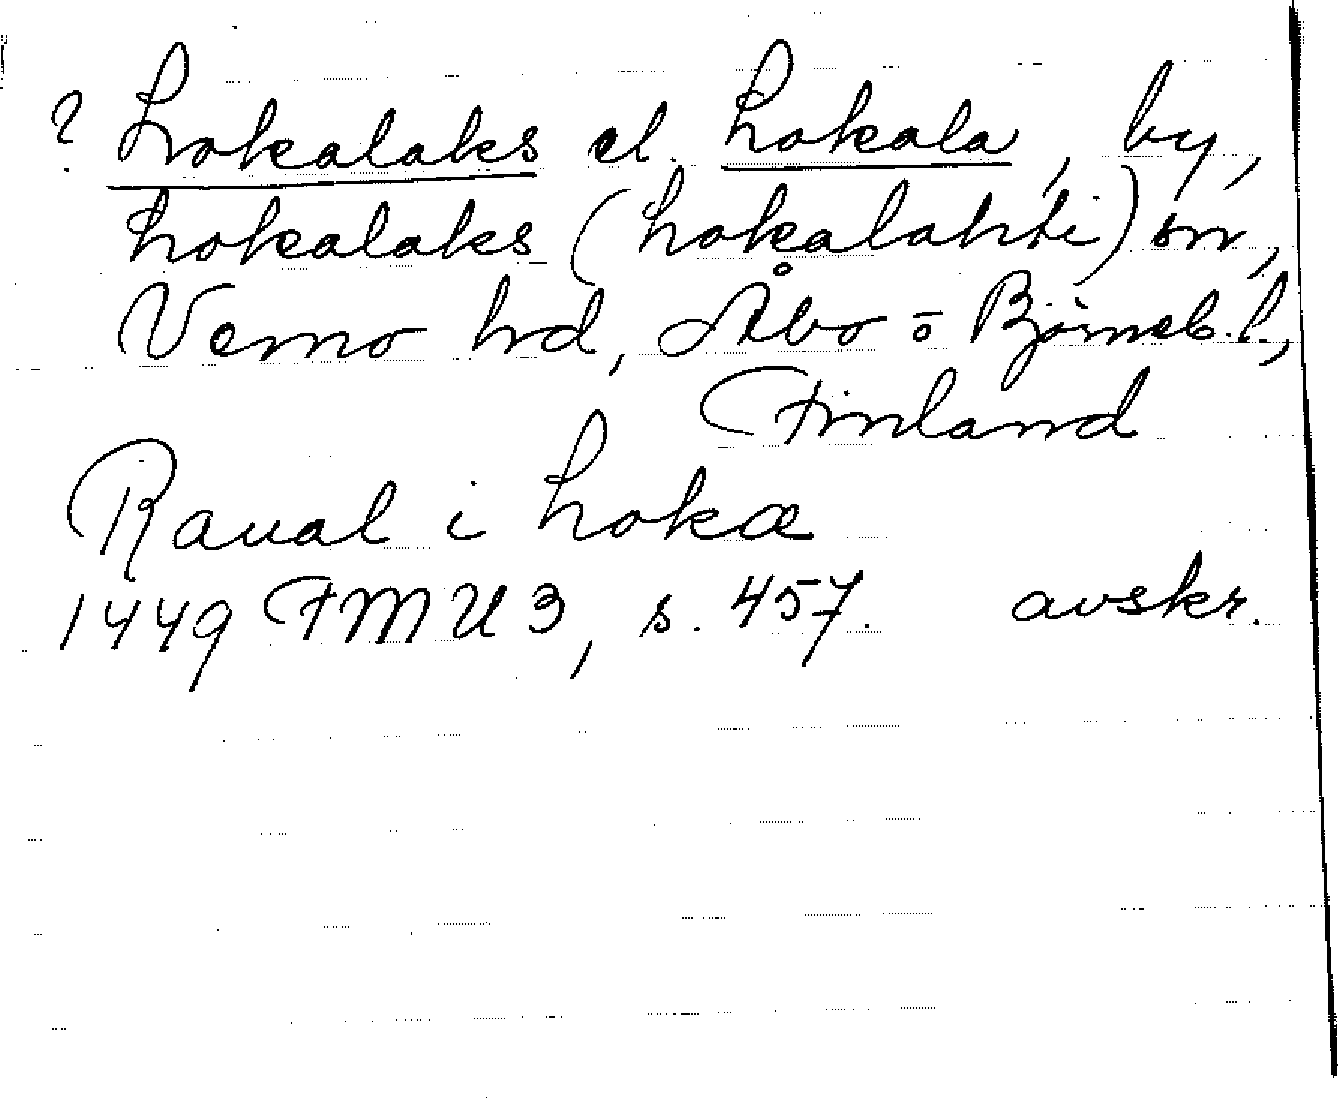 ? Lokalaks el. Lokala, by,
Lokalaks (Lokalahti) sn,
Vemo hd, Åbo o Björneb. l.,
Finland
Raual i Loka
1449 FMU 3, s. 457. avskr.